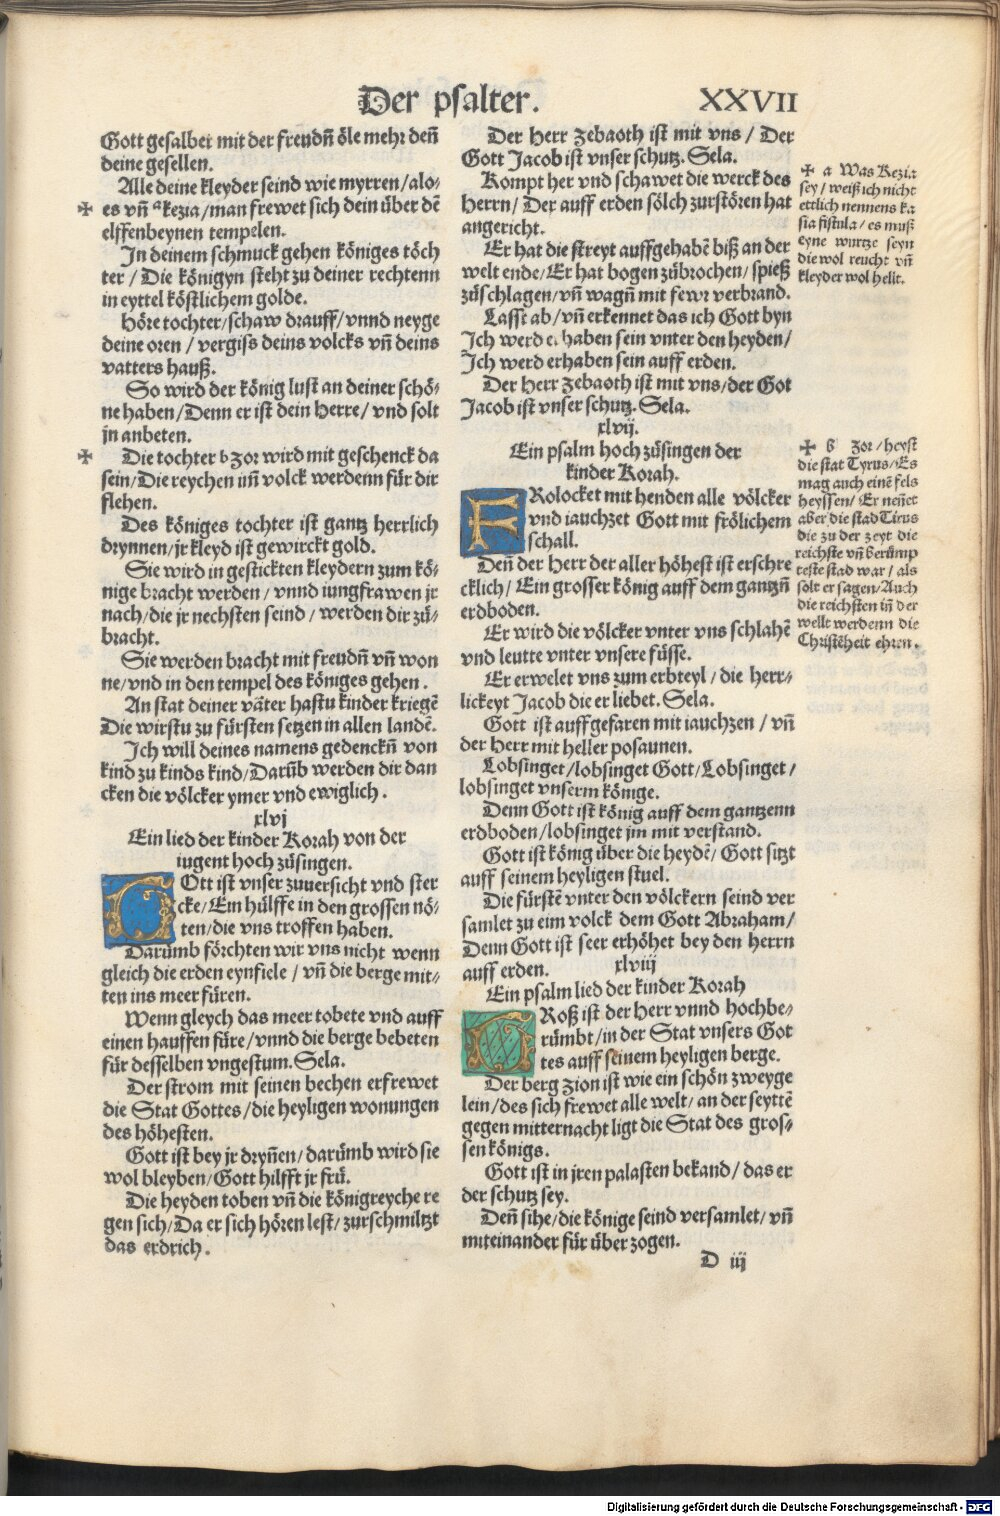 Der psalter. XXVII
Gott gesalbet mit der freudñ öle mehr deñ
deine gesellen.
Alle deine kleyder seind wie myrren/alo-
✠ es vñ ᵃkezia/man frewet sich dein über dē
elffenbeynen tempelen.
In deinem schmuck gehen königes töch
ter / Die königyn steht zu deiner rechtenn
in eyttel köstlichem golde.
Höre tochter/schaw drauff/vnnd neyge
deine oren / vergiss deins volcks vñ deins
vatters hauß.
So wird der könig lust an deiner schö-
ne haben/Denn er ist dein Herre/ vnd solt
jn anbeten.
✠ Die tochter b Zor wird mit geschenck da
sein/Die reychen im̃ volck werdenn für dir
flehen.
Des königes tochter ist gantz herrlich
drynnen/jr kleyd ist gewirckt gold.
Sie wird in gestickten kleydern zum kö-
nige bracht werden / vnnd iungfrawen jr
nach/die jr nechsten seind / werden dir zů-
bracht.
Sie werden bracht mit freudñ vñ won
ne/vnd in den tempel des königes gehen.
An stat deiner väter hastu kinder kriegē
Die wirstu zu fürsten setzen in allen landē.
Ich will deines namens gedenckñ von
kind zu kinds kind/Darüb werden dir dan
cken die völcker ymer vnd ewiglich.
xlvj
Ein lied der kinder Korah von der
iugent hoch zůsingen.
GOtt ist vnser zuuersicht vnd ster
cke/Ein hülffe in den grossen nö-
ten/die vns troffen haben.
Darümb förchten wir vns nicht wenn
gleich die erden eynfiele / vñ die berge mit-
ten ins meer füren.
Wenn gleych das meer tobete vnd auff
einen hauffen füre/vnnd die berge bebeten
für desselben vngestum. Sela.
Der strom mit seinen bechen erfrewet
die Stat Gottes/die heyligen wonungen
des höhesten.
Gott ist bey jr dryñen/darümb wird sie
wol bleyben/Gott hilfft jr frů.
Die heyden toben vñ die königreyche re
gen sich/Da er sich hören lest/ zurschmiltzt
das erdrich.
Der Herr Zebaoth ist mit vns / Der
Gott Jacob ist vnser schutz. Sela.
Kompt her vnd schawet die werck des
Herrn/ Der auff erden sölch zurstören hat
angericht.
Er hat die streyt auffgehabē biß an der
welt ende/Er hat bogen zůbrochen/ spieß
zůschlagen/vñ wagñ mit fewr verbrand.
Lasst ab/vñ erkennet das ich Gott byn
Ich werd erhaben sein vnter den heyden/
Ich werd erhaben sein auff erden.
Der Herr Zebaoth ist mit vns/der Got
Jacob ist vnser schutz. Sela.
xlvij.
Ein psalm hoch zůsingen der
kinder Korah.
FRolocket mit henden alle völcker
vnd iauchzet Gott mit frölichem
schall.
Deñ der Herr der aller höhest ist erschre
cklich/ Ein grosser könig auff dem gantzñ
erdboden.
Er wird die völcker vnter vns schlahē
vnd leutte vnter vnsere füsse.
Er erwelet vns zum erbteyl / die herr-
lickeyt Jacob die er liebet. Sela.
Gott ist auffgefaren mit iauchzen / vñ
der Herr mit heller posaunen.
Lobsinget/lobsinget Gott/Lobsinget/
lobsinget vnserm könige.
Denn Gott ist könig auff dem gantzenn
erdboden/lobsinget jm mit verstand.
Gott ist könig über die heydē/ Gott sitzt
auff seinem heyligen stuel.
Die fürstē vnter den völckern seind ver
samlet zu eim volck dem Gott Abraham/
Denn Gott ist seer erhöhet bey den herrn
auff erden.
xlviij
Ein psalm lied der kinder Korah
GRoß ist der Herr vnnd hochbe-
rümbt/in der Stat vnsers Got
tes auff seinem heyligen berge.
Der berg Zion ist wie ein schön zweyge
lein/des sich frewet alle welt/ an der seyttē
gegen mitternacht ligt die Stat des gros-
sen königs.
Gott ist in jren palasten bekand/ das er
der schutz sey.
Deñ sihe/die könige seind versamlet/ vñ
miteinander für über zogen.
D iij
✠ a Was Kezia
sey/ weiß ich nicht
ettlich nennens ka
sia fistula/ es muß
eyne wurtze seyn
die wol reucht vñ
kleyder wol helt.
✠ b Zor/heyst
die stat Tyrus/Es
mag auch einē fels
heyssen/ Er neñet
aber die stad Tirus
die zu der zeyt die
reichste vñ berümp
teste stad war/ als
solt er sagen/Auch
die reichsten in der
wellt werdenn die
Christēheit ehren.
Digitalisierung gefördert durch die Deutsche Forschungsgemeinschaft - DFG